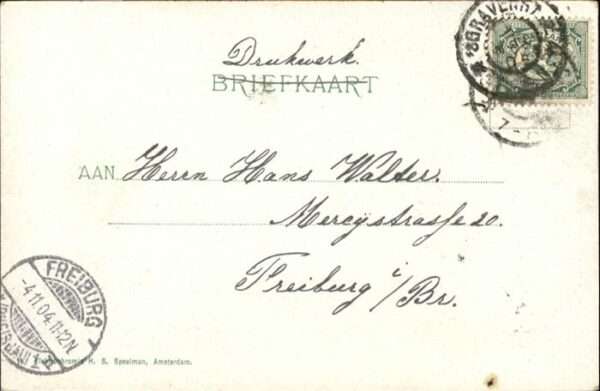 Drukwerk.
BRIEFKAART
'SGRAVENHA
7
AAN Herrn Hans Walter.
Mercystrasse 20.
Freiburg i/Br.
FREIBURG
-4.11.04.11-12N
H. S. Speelman, Amsterdam.